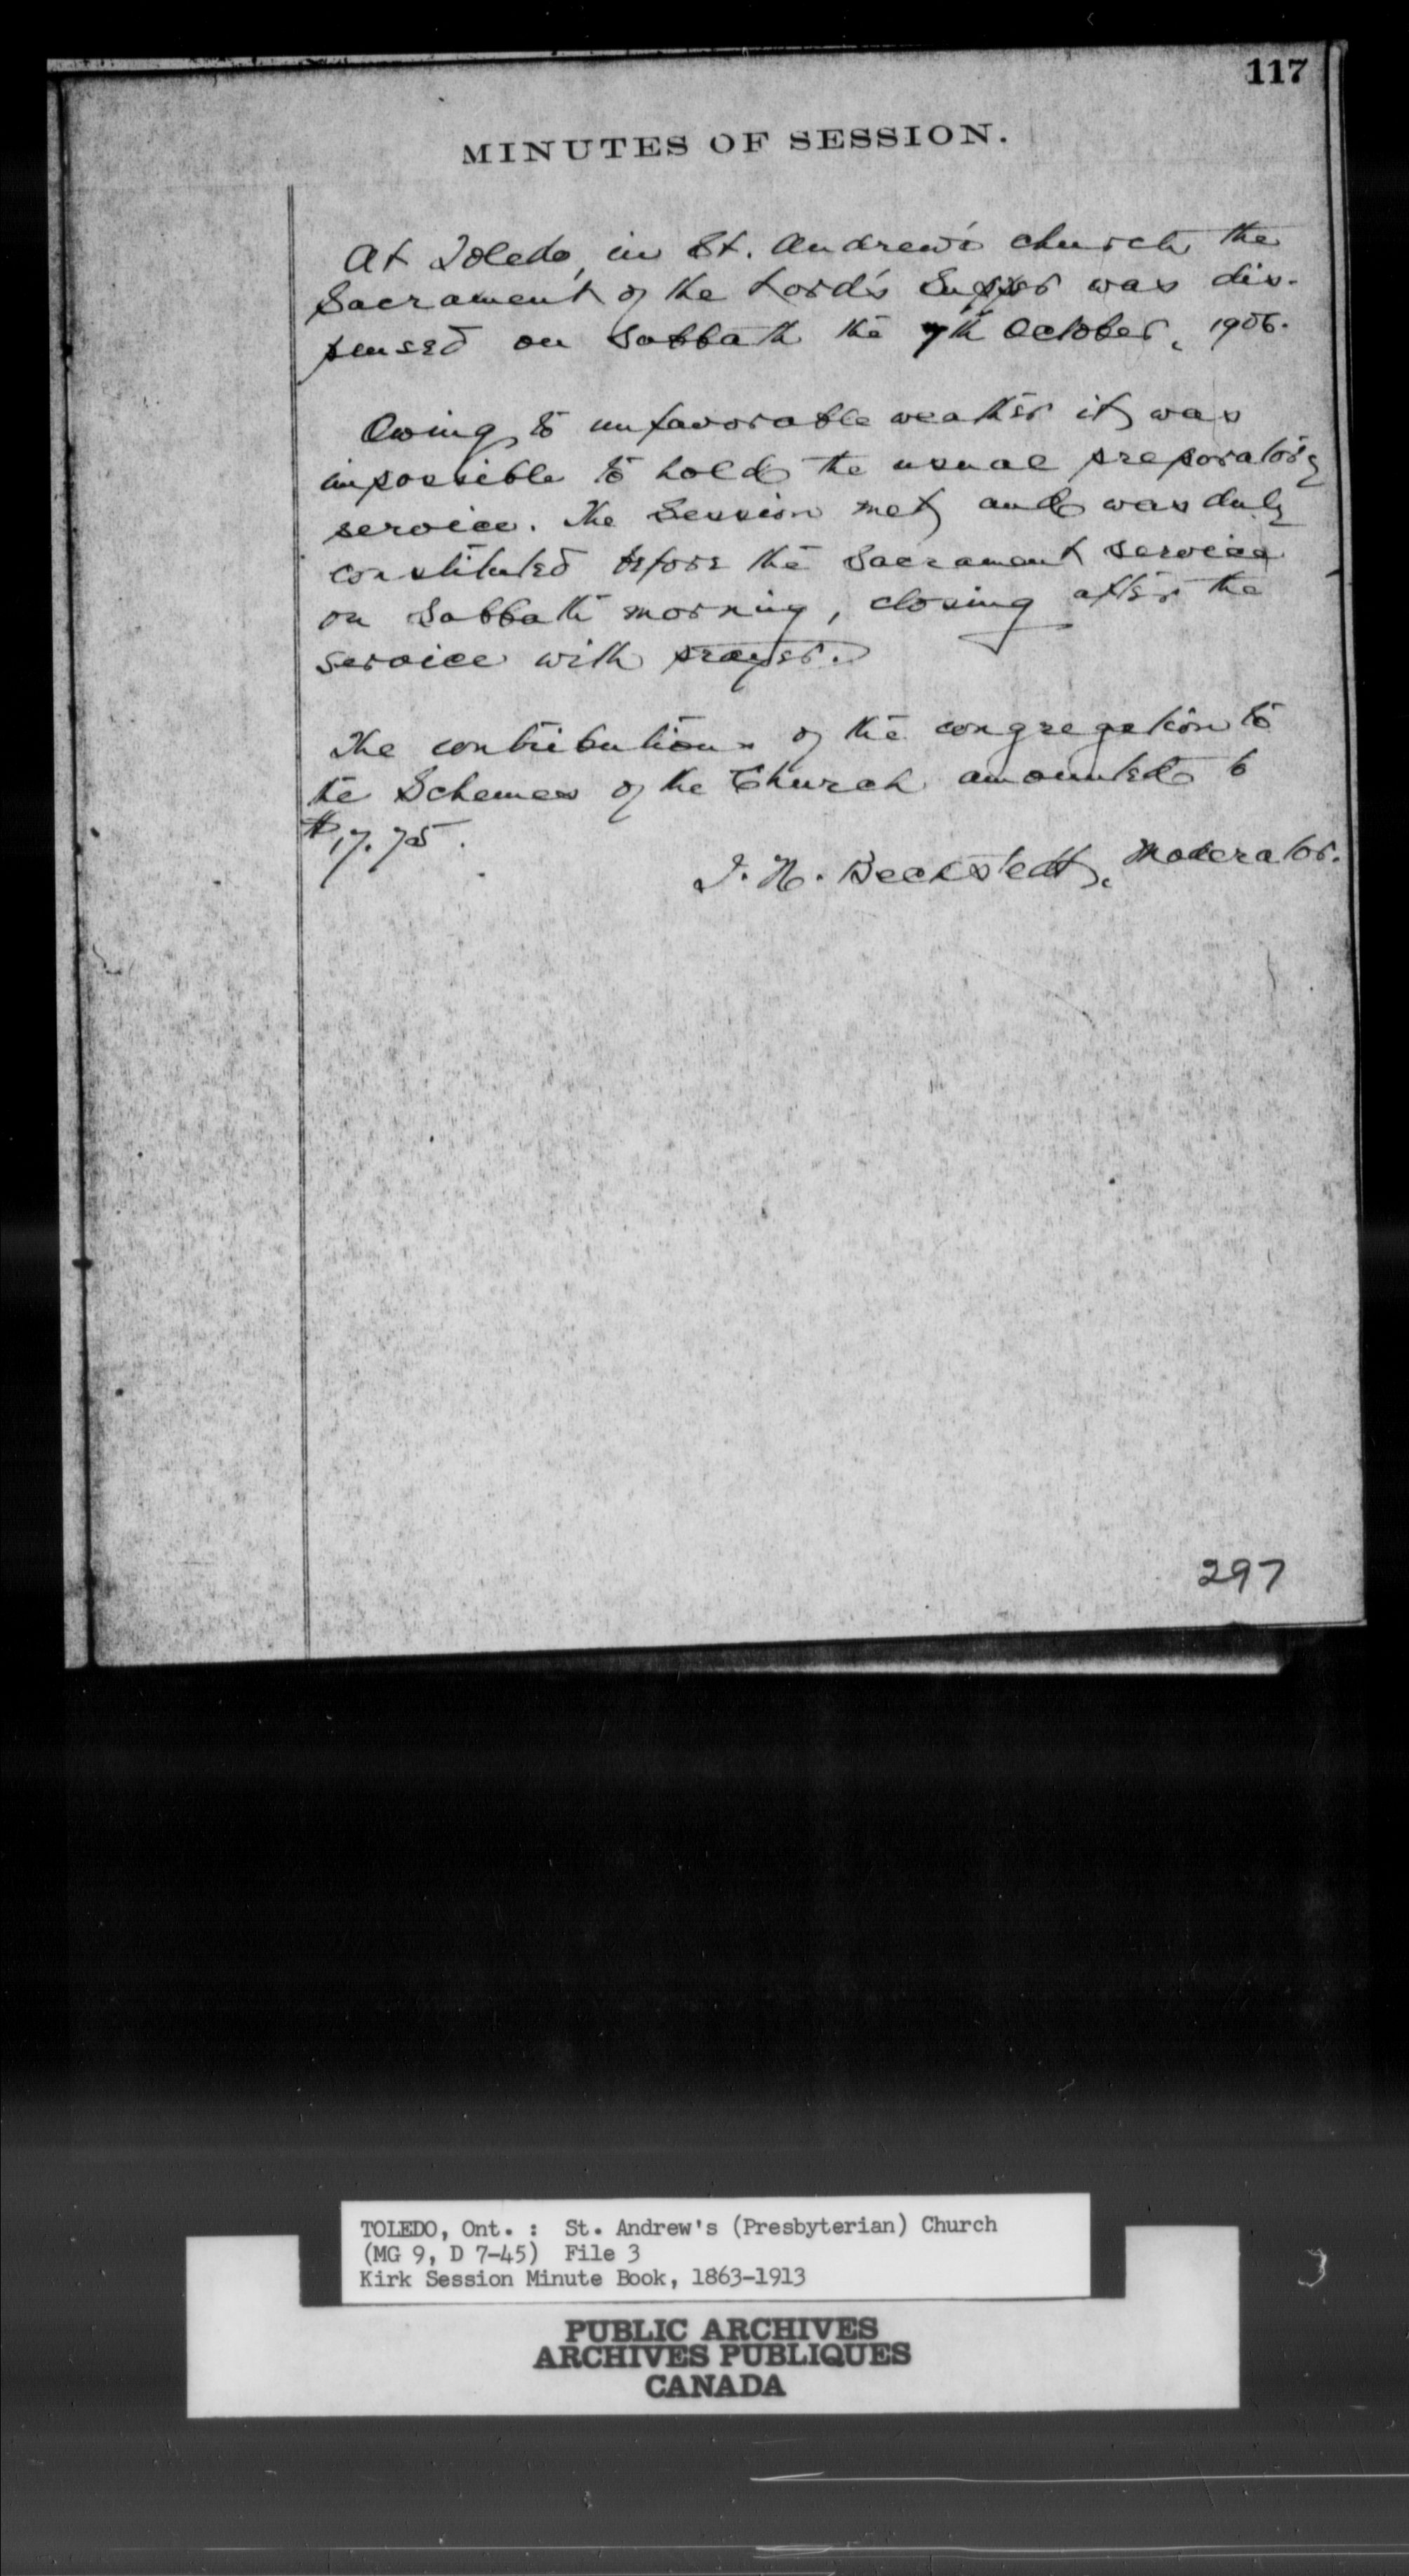 117
MINUTES OF SESSION.
At Toledo, in St. Andrew's church the
Sacrament of the Lord's Supper was dis-
pensed on Sabbath the 7th October, 1906.
Owing to unfavorable weather it was
impossible to hold the usual preparatory
service. The Session met and was duly
constituted before the Sacrament service
on Sabbath morning, closing after the
service with prayer.
The contributions of the congregation to
the Schemes of the Church amounted to
$17.75.
J. H. Beckstedt, Moderator.
297
TOLEDO, Ont. : St. Andrew's (Presbyterian) Church
(MG 9, D 7-45) File 3
Kirk Session Minute Book, 1863-1913
3
PUBLIC ARCHIVES
ARCHIVES PUBLIQUES
CANADA